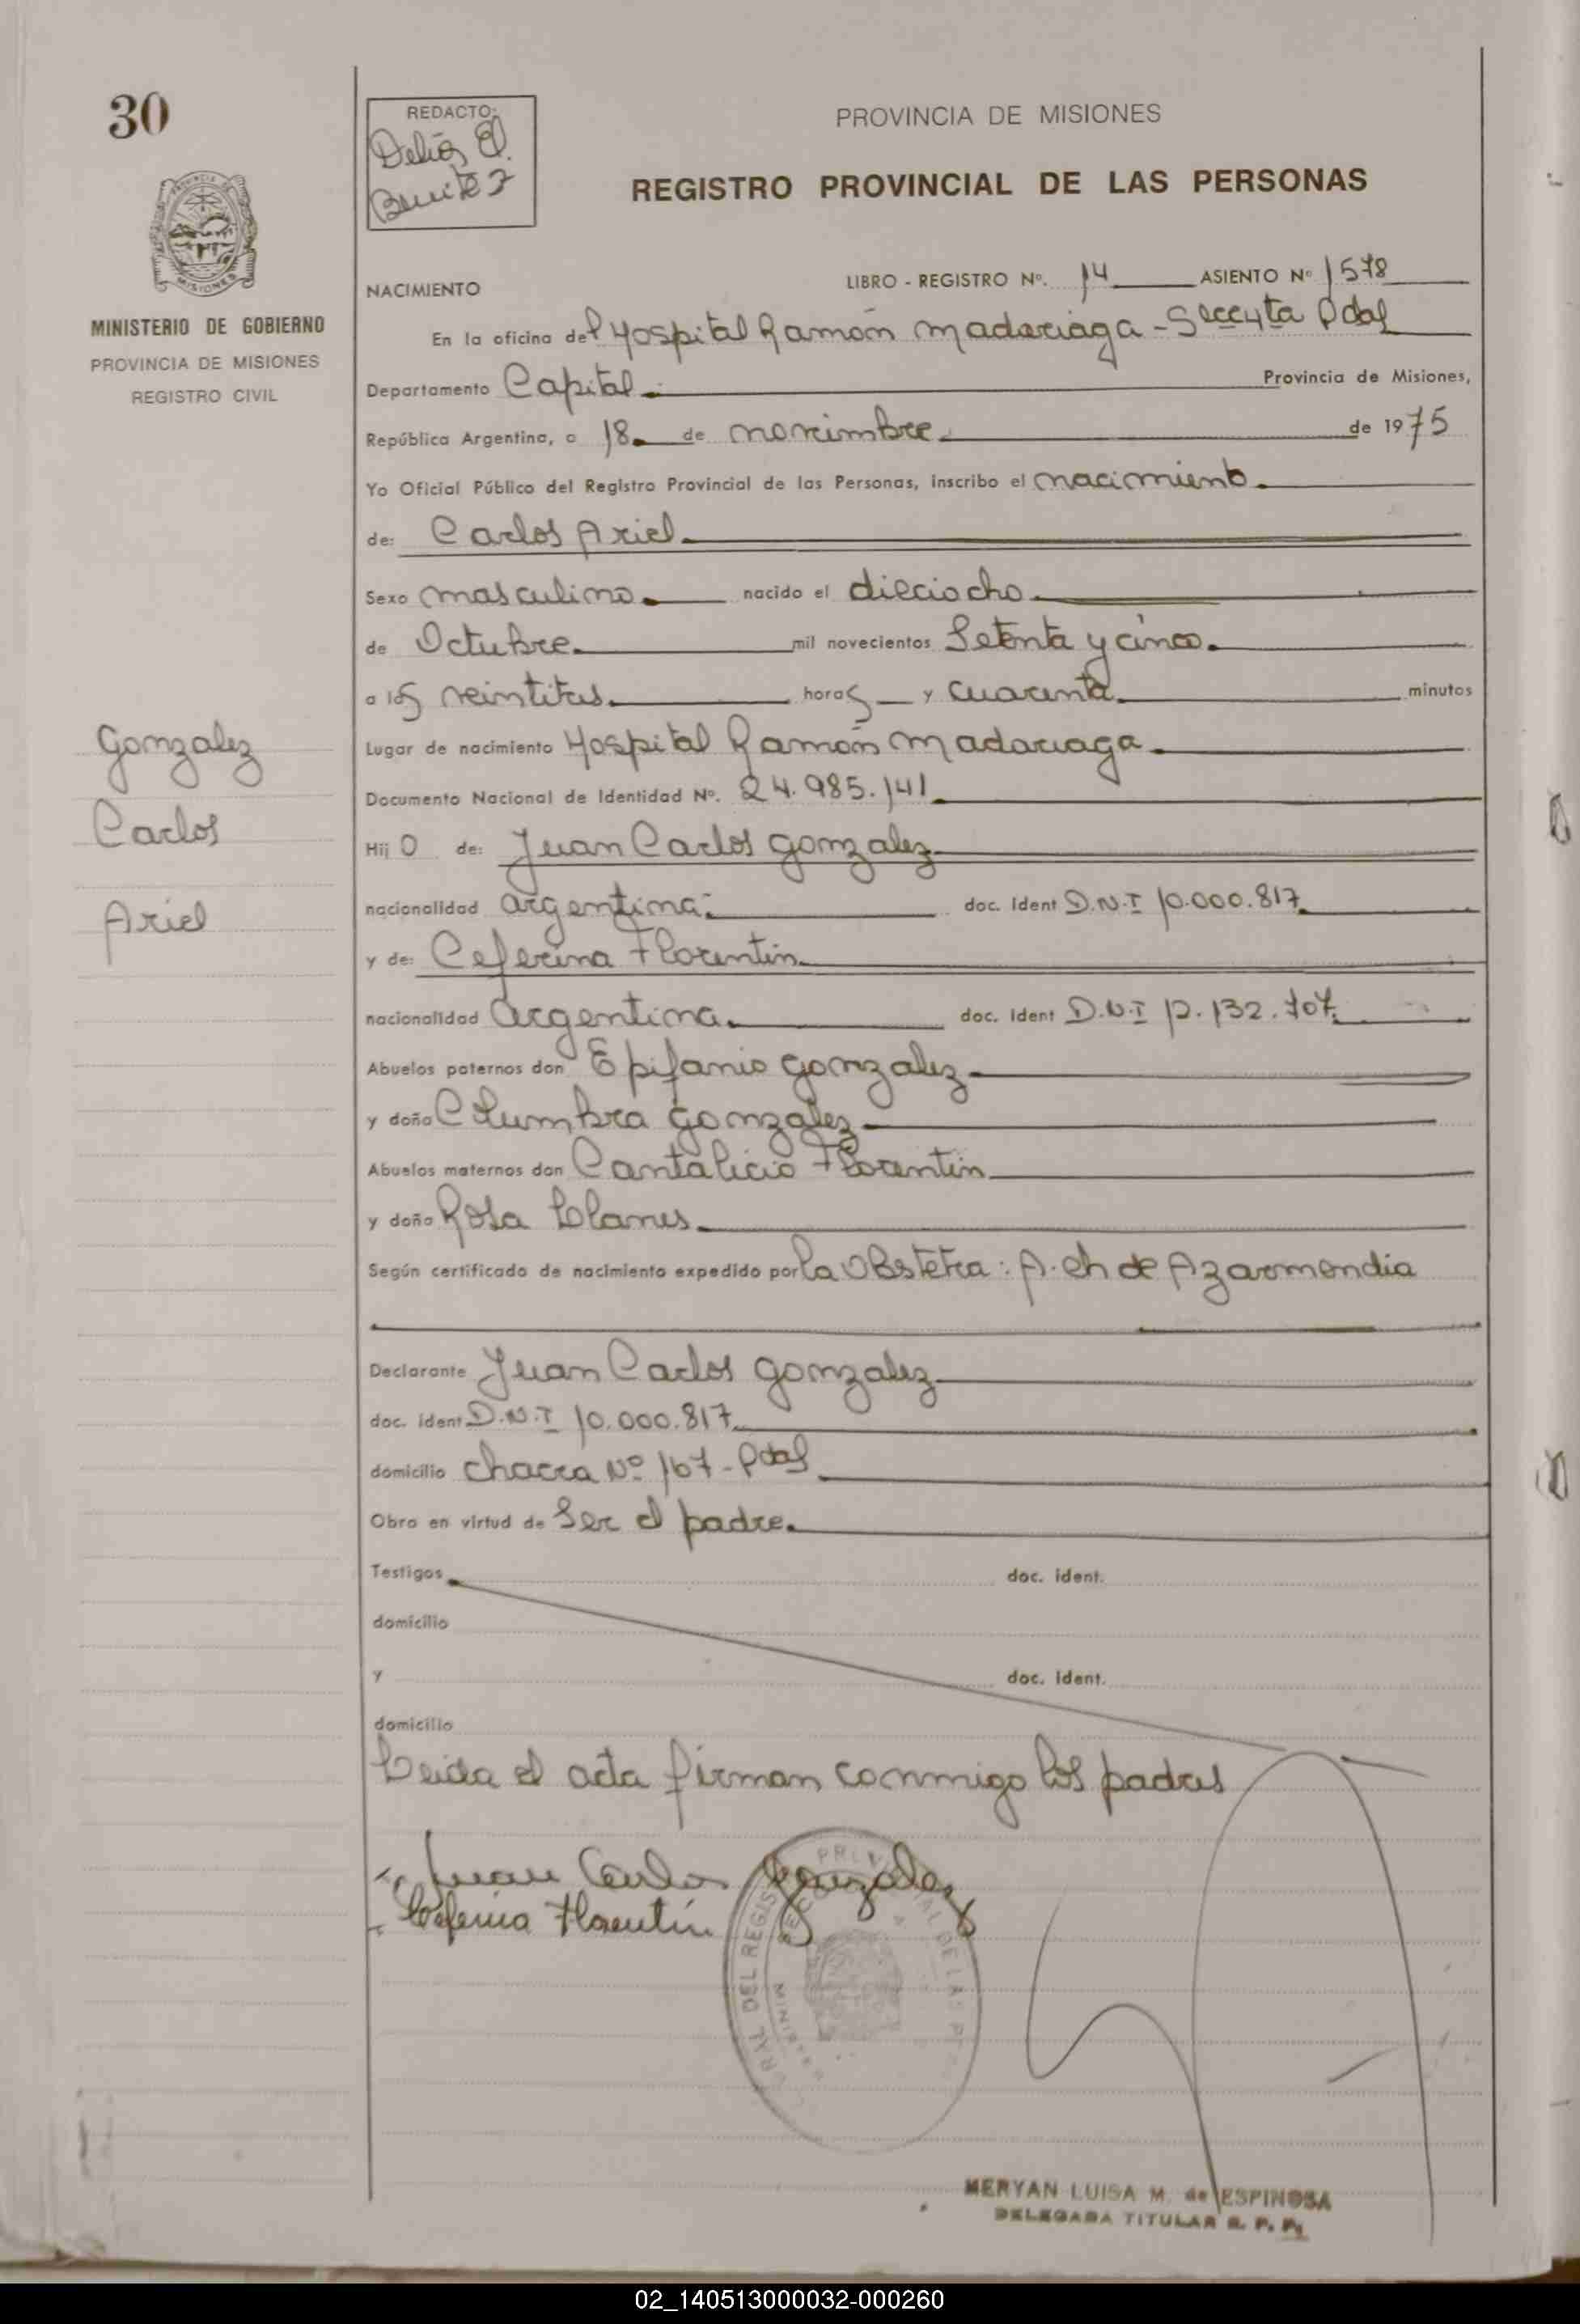 30
REDACTO:
Delia E.
Benitez
PROVINCIA DE MISIONES
REGISTRO PROVINCIAL DE LAS PERSONAS
MINISTERIO DE GOBIERNO
PROVINCIA DE MISIONES
REGISTRO CIVIL
NACIMIENTO LIBRO - REGISTRO Nº. 14 ASIENTO Nº 1578
En la oficina del Hospital Ramón Madariaga - Secc 4ta Pdas
Departamento Capital. Provincia de Misiones,
República Argentina, a 18. de noviembre. de 1975
Yo Oficial Público del Registro Provincial de las Personas, inscribo el nacimiento.
de: Carlos Ariel.
Sexo masculino. nacido el dieciocho.
de Octubre. mil novecientos Setenta y cinco.
a las veintitres. horas y cuarenta. minutos
Gonzalez
Carlos
Ariel
Lugar de nacimiento Hospital Ramón Madariaga.
Documento Nacional de Identidad Nº. 24.985.141.
Hij o de: Juan Carlos Gonzalez
nacionalidad argentina. doc. Ident D.N.I 10.000.817.
y de: Ceferina Florentin.
nacionalidad argentina. doc. Ident D.N.I 12.132.707.
Abuelos paternos don Epifanio Gonzalez
y doña Columbra Gonzalez
Abuelos maternos don Cantalicio Florentin
y doña Rosa Llanes.
Según certificado de nacimiento expedido por la Obstetra: A. Ch de Azarmendia
Declarante Juan Carlos Gonzalez
doc. ident D.N.I 10.000.817.
domicilio chacra Nº 167 - Pdas
Obra en virtud de Ser el padre.
Testigos doc. ident.
domicilio
y doc. ident.
domicilio
Leida el acta firman conmigo los padres
Juan Carlos Gonzalez
Ceferina Florentín
MERYAN LUISA M. de ESPINOSA
DELEGADA TITULAR R. P. P.
02_140513000032-000260